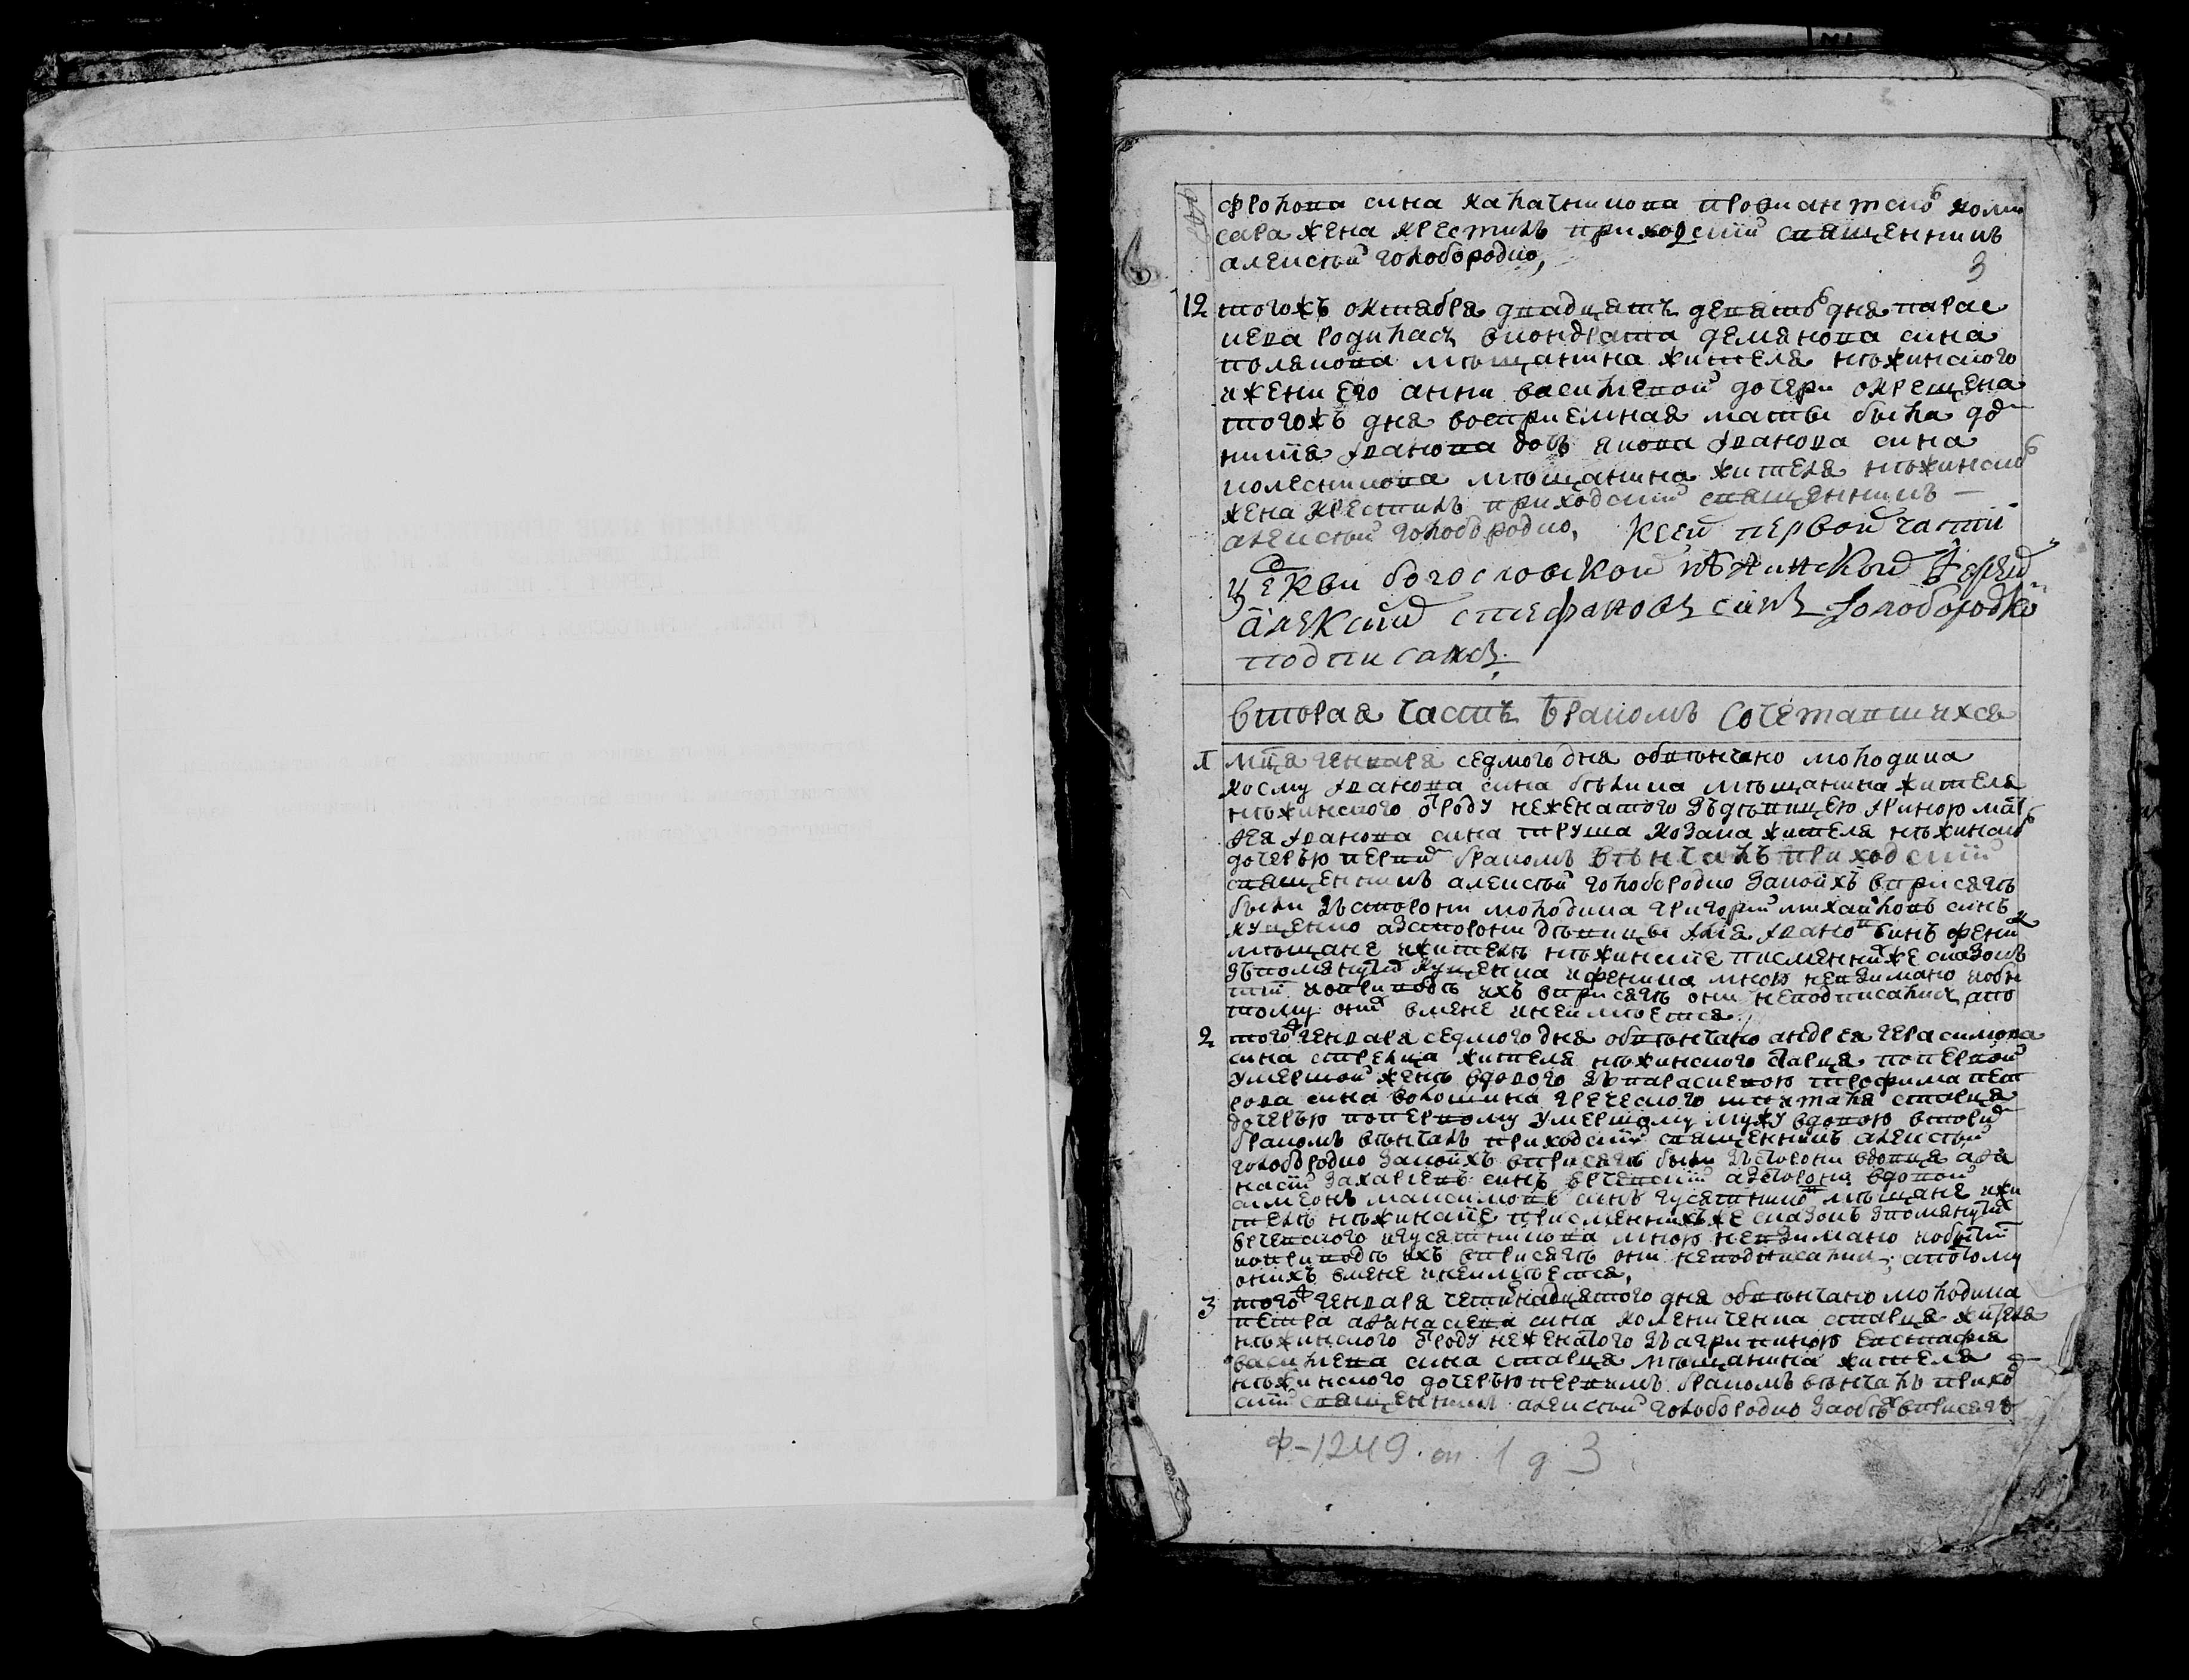 фролова сина калачникова провиантского коми
сара жена крестилъ приходский священникъ
алексѣй голобородко,
3
12 тогожъ октября двадцять девятого дня парас
кева родилась вкондрата демянова сина
полякова мѣщанина жителя нѣжинского
ижени его анни василевой дочери окрещена
тогожъ дня восприемная мать била
иванова якова иванова сина
колесникова мѣщанина жителя нѣжинского
жена крестилъ приходский священникъ
алексѣй голобородко, ксей первой части
церкви богословской нѣжинской иерей
алексий стефановъ синъ голобородко
подписалсь.
вторая часть бракомъ сочетавшихся
1 мца генваря седмого дня обвѣнчано молодика
косму иванова сина бѣлика мѣщанина жителя
нѣжинского отроду неженатого здѣвицею ириною мат
фея иванова сина козака жителя нѣжинского
дочерью первим бракомъ вѣнчалъ приходский
священникъ алексѣй голобородко заноихъ вприсягѣ
били зъсторони молодика григорий михайловъ синъ
куценко азсторони дѣвици илія ивановъ синъ феник
мѣщане ижители нѣжинские писменнихже сказокъ
зъпомянутих куценка ифеника мною невзимано
попривод​ѣ ихъ вприсягѣ они неподписались апо
тому оних вмене инеимѣется
2 того генваря седмого дня обвѣнчано андрея герасимова
сина стрелца жителя нѣжинского старца поперво​й
умершой женѣ вдового зъпараскевою трофима пет
рова сина волошина греческого шпиталя старца
дочерью попервому умершому мужу вдовою вторим
бракомъ вѣнчалъ приходский священникъ алексѣй
голобородко заноихъ вприсягѣ били зъсторони вдовца афа
насий захариевъ синъ азсторони вдови
симеонъ максимовъ синъ мѣщане ижи
тели нѣжинские писменнихъже сказокъ зпомянутих
мною невзимано
поприводѣ ихъ вприсягѣ они неподписались, апотому
онихъ вмене инеимѣется,
3 того генваря четирнадцятого дня обвѣнчано молодика
петра афанасиева сина колениченка старца жителя
нѣжинского отроду неженатого зъагрипиною евстафия
василиева сина старца мѣщанина жителя
нѣжинского дочерью первимъ бракомъ вѣнчалъ прихо
ский священникъ алексѣй голобородко вприсягѣ
ф-1249 оп. 1 д 3